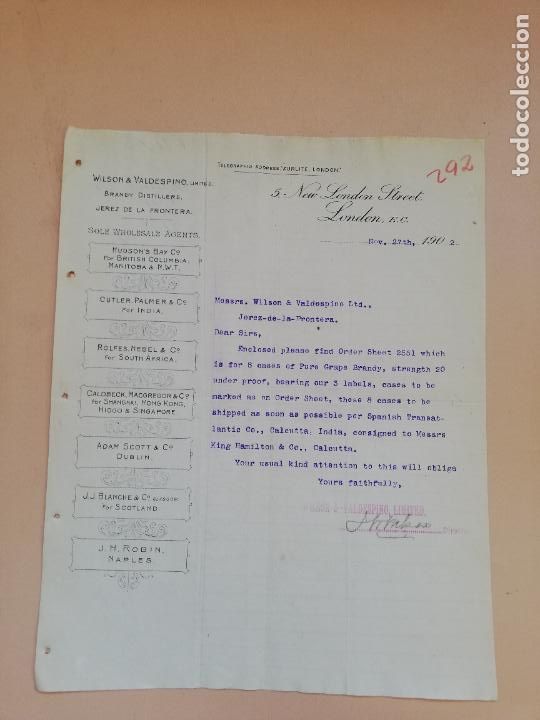 TELEGRAPHIC ADDRESS "XURLITE, LONDON."
292
WILSON & VALDESPINO, LIMITED.
BRANDY DISTILLERS,
JEREZ DE LA FRONTERA.
SOLE WHOLESALE AGENTS.
HUDSON'S BAY Co
FOR BRITISH COLUMBIA,
MANITOBA & N.W.T.
CUTLER, PALMER & Co
FOR INDIA.
ROLFES, NEBEL & Co
FOR SOUTH AFRICA.
CALDBECK, MACGREGOR & Co
FOR SHANGHAI, HONG KONG,
HIOGO & SINGAPORE
ADAM SCOTT & Co
DUBLIN.
J.J. BLANCHE & Co GLASGOW
FOR SCOTLAND
J. H. ROBIN,
NAPLES
5, New London Street,
London, E.C.
Nov. 27th, 1902.
Messrs. Wilson & Valdespino Ltd.,
Jerez-de-la-Frontera.
Dear Sirs,
Enclosed please find Order Sheet 2551 which
is for 8 cases of Pure Grape Brandy, strength 20
under proof, bearing our 3 labels, cases to be
marked as on Order Sheet, these 8 cases to be
shipped as soon as possible per Spanish Transat-
lantic Co., Calcutta, India, consigned to Messrs
King Hamilton & Co., Calcutta.
Your usual kind attention to this will oblige
Yours faithfully,
& VALDESPINO, LIMITED.
todocoleccion